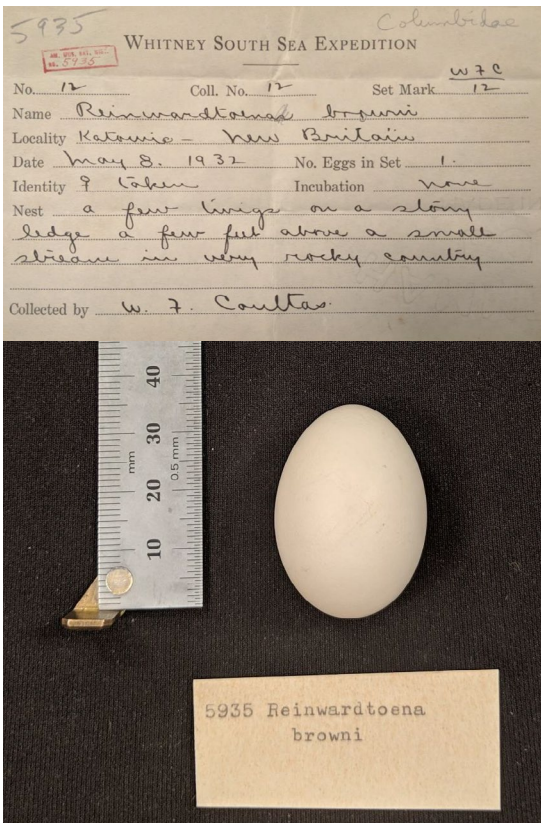 5935
Columbidae
WHITNEY SOUTH SEA EXPEDITION
AM. MUS. NAT. HIS.
No. 5935
W F C
No. 12 Coll. No. 12 Set Mark 12
Name Reinwardtoena browni
Locality Katowia - New Britain
Date May 8. 1932 No. Eggs in Set 1.
Identity ♀ taken Incubation none
Nest a few twigs on a stony
ledge a few feet above a small
stream in very rocky country
Collected by W. F. Coultas.
40
30
mm
0.5 mm
20
10
5935 Reinwardtoena
browni